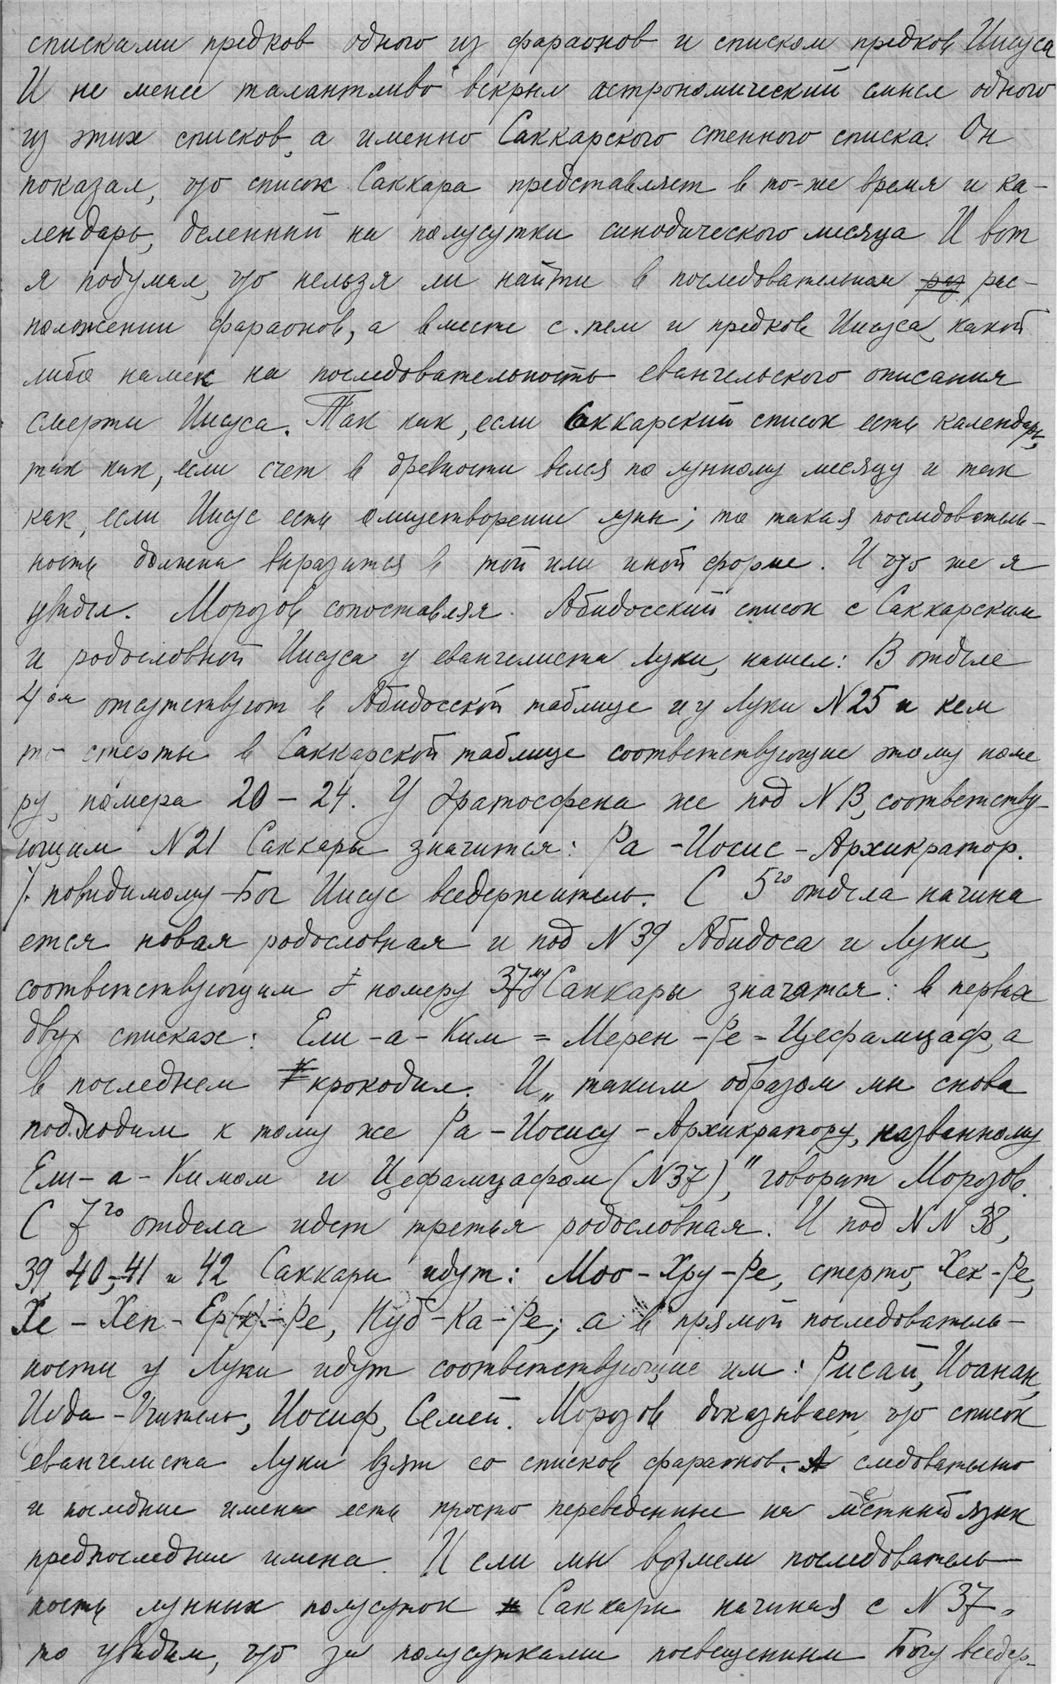 списками предков одного из фараонов и списком предков Иисуса
И не менее талантливо вскрыл астрономический смысл одного
из этих списков, а именно Саккарского стенного списка. Он
показал, что список Саккара представляет в то-же время и ка-
лендарь, деленный на полусутки синодического месяца И вот
я подумал, что нельзя ли найти в последовательном рас-
положении фараонов, а вместе с тем и предков Иисуса, какой
либо намек на последовательность евангельского описания
смерти Иисуса. Так как, если Саккарский список есть календарь,
так как, если счет в древности велся по лунному месяцу и так
как, если Иисус есть олицетворение луны; то такая последователь-
ность должна выразится в той или иной форме. И что же я
увидел. Морозов сопоставляя Абидосский список с Саккарским
и родословной Иисуса у евангелиста Луки, нашел: В отделе
4ом отсутствуют в Абидосской таблице и у Луки N25 и кем
то стерты в Саккарской таблице соответствующие этому номе
ру, номера 20-24. У Эратосфена же под N 13, соответству-
ющим N21 Саккары значится: Ра-Иосис-Архикратор.
т. повидимому Бог Иисус вседержитель. С 5го отдела начина
ется новая родословная и под N39 Абидоса и Луки,
соответствующим номеру 37му Саккары значатся: в первых
двух списках: Ели-а-Ким = Мерен-Ре-Цефамцаф, а
в последнем крокодил. И „таким образом мы снова
подходим к тому же Ра-Иосису-Архикратору, названному
Ели-а-Кимом и Цефамцафом (N37)", говорит Морозов.
С 7го отдела идет третья родословная. И под NN 38,
39, 40, 41 и 42 Саккары идут: Моо-Хру-Ре, стерто, Хек-Ре,
Хе-Хеп-Ер(х)-Ре, Нуб-Ка-Ре; а в прямой последователь-
ности у Луки идут соответствующие им: Рисай, Иоанан,
Иуда-Учитель, Иосиф, Семей. Морозов доказывает, что список
евангелиста Луки взят со списков фараонов. следовательно
и последние имена есть просто переведенные на местный язык
предпоследние имена. И если мы возмем последователь-
ность лунных полусуток Саккары начиная с N37,
то увидим, что за полусутками посвещенным Богу вседер-